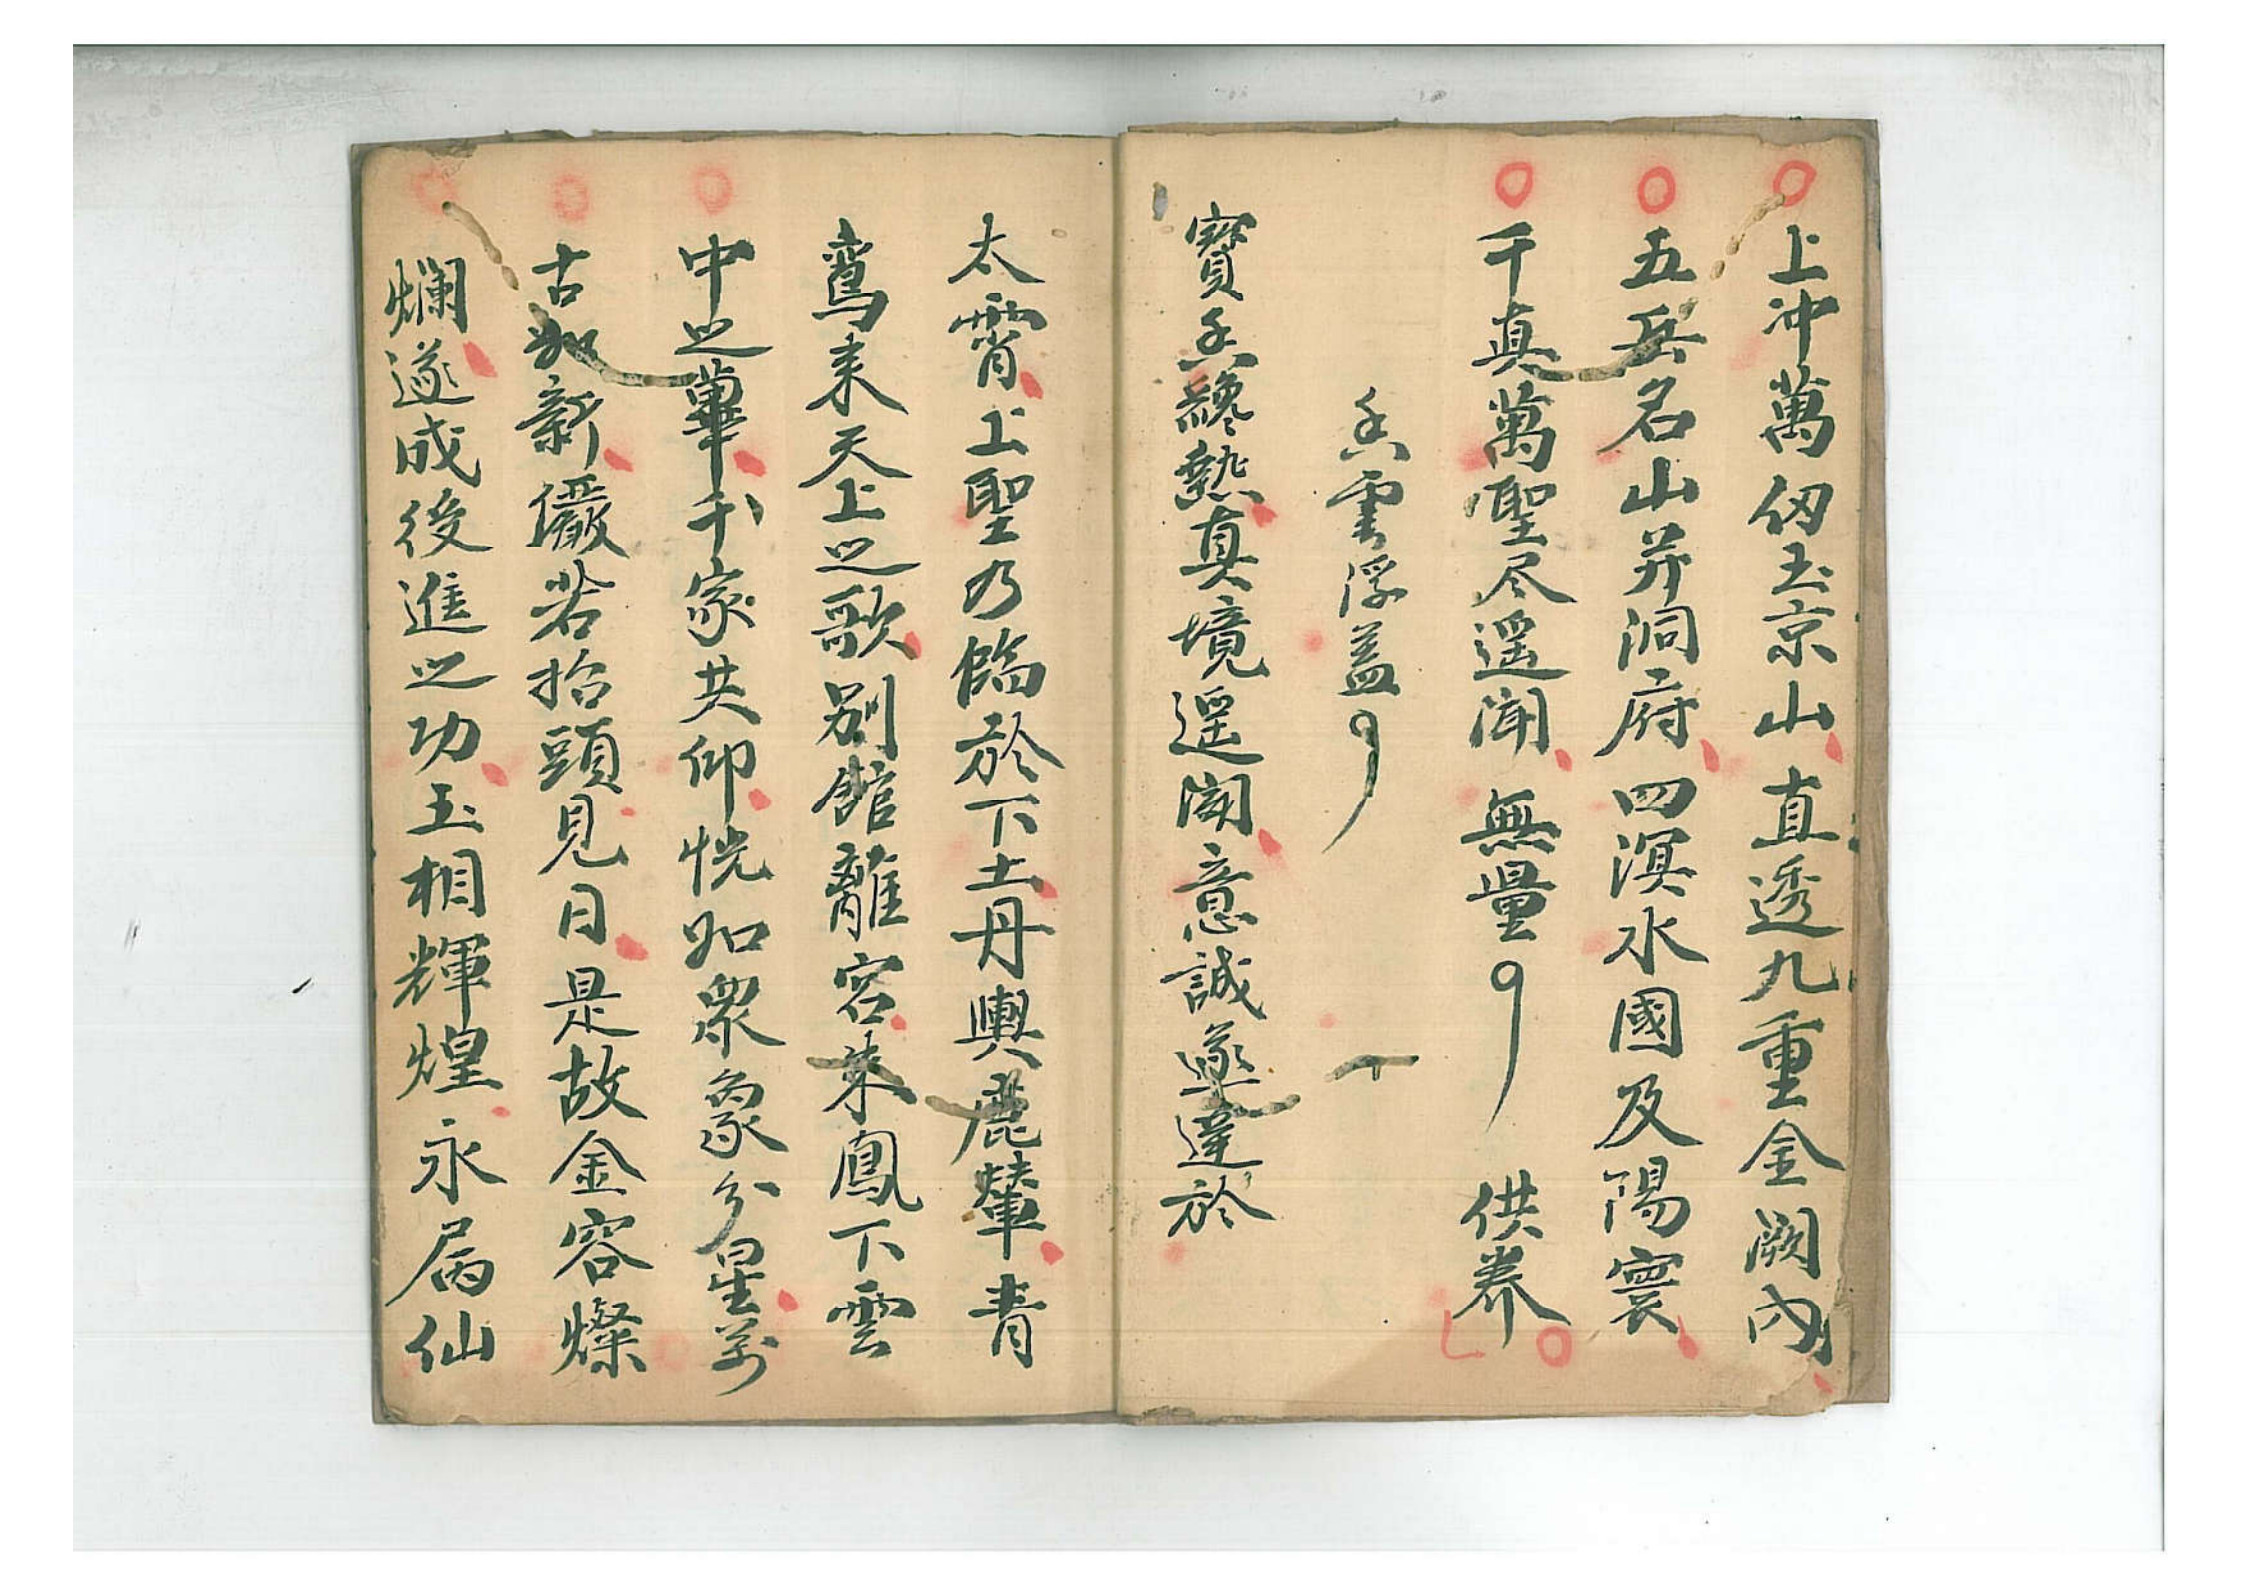 上冲萬仞玉京山直透九重金阙内
五兵名山并洞府四溟水國及陽寰
千真萬聖尽遥闻無量供养
香雲浮蓋
寳香纔熱真境遥闻意誠遂達於
太霄上聖乃臨於下土丹輿麗輦青
鸾来天上之歌别館離容来鳳下雲
中之蓽千家共仰恍如衆象分星万
古如新儼若抬頭見日是故金容燦
爛遂成後進之功玉相輝煌永属仙